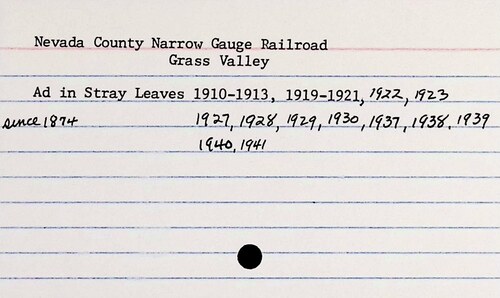 Nevada County Narrow Gauge Railroad
Grass Valley
Ad in Stray Leaves 1910-1913, 1919-1921, 1922, 1923
since 1874 1927, 1928, 1929, 1930, 1937, 1938, 1939
1940, 1941